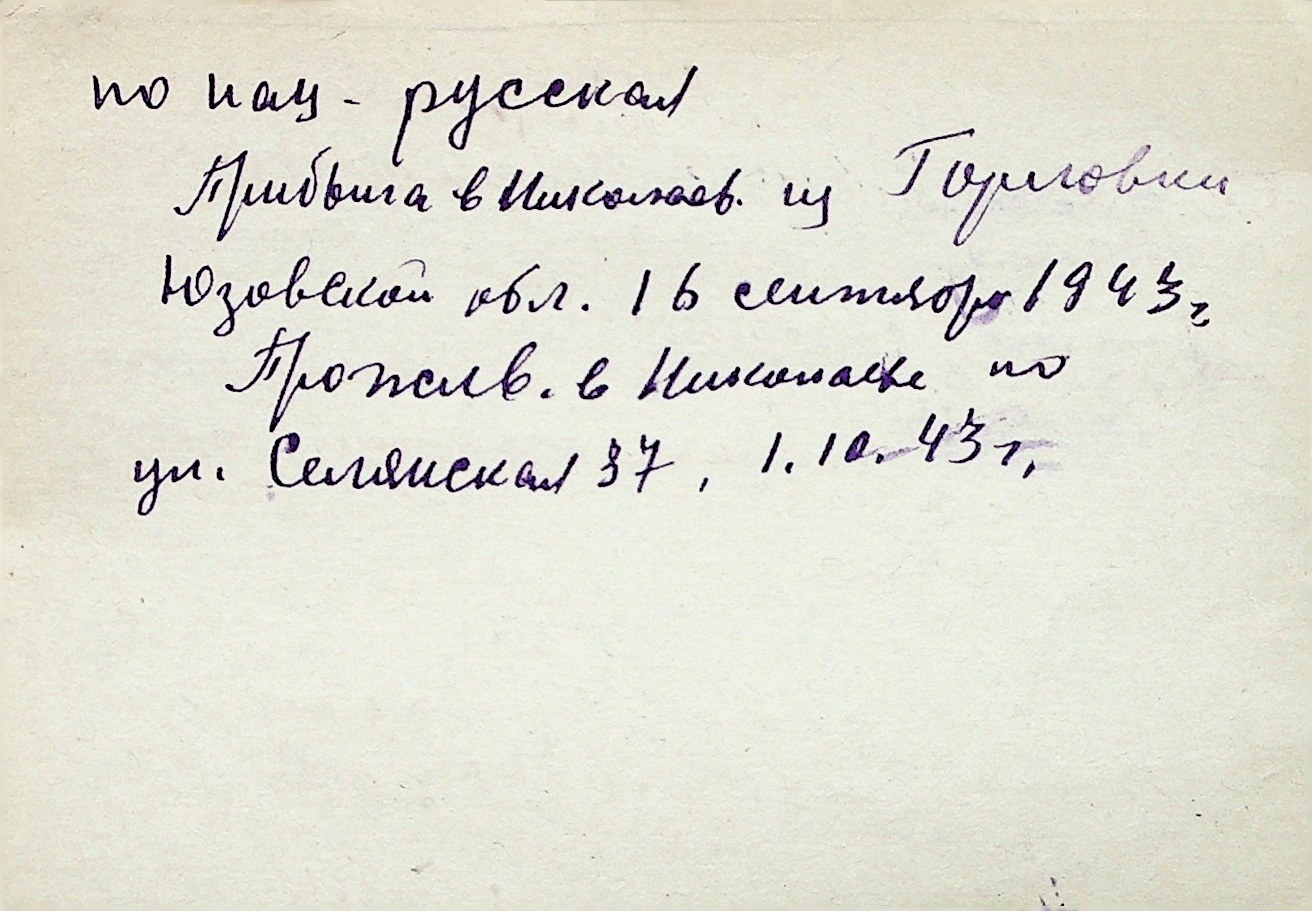 по нац - русская
Прибыла в Николаев. из Горловки
Юзовской обл. 16 сентября 1943 г,
Прожив. в Николаеве по
ул. Селянская 37, 1.10.43 г,